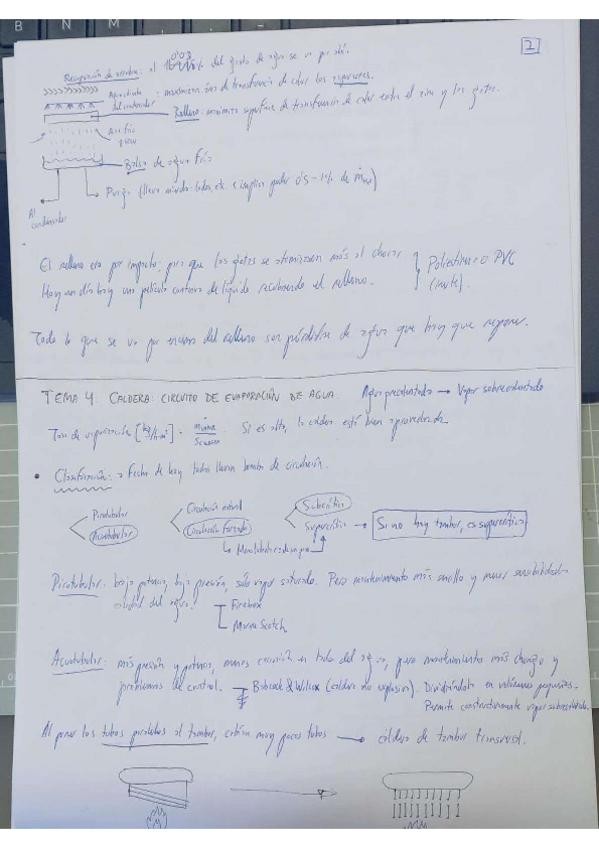 2
Recuperación de arrastre: el % del gasto de agua se va por
: maximización de transferencia de calor los aspersores.
del condensador
Relleno: máxima superficie de transferencia de calor entre el aire y las gotas.
Aire frío
Balsa de agua fría
Purga (lleva minerales, lodos, etc. e implica perder 0'5-1% de
Al condensador
El relleno era por impacto: para que las gotas se atomizasen más al chocar
Hoy en día hay una película continua de líquido recubriendo el relleno.
Poliestireno o PVC
(inerte).
Todo lo que se va por encima del relleno son pérdidas de agua que hay que reponer.
TEMA 4. CALDERA: CIRCUITO DE EVAPORACIÓN DE AGUA. Agua precalentada → Vapor sobrecalentado
Tasa de vaporización [kg/h·m²] = Si es alta, la caldera está bien aprovechada.
• Clasificación: a fecha de hoy todas llevan bomba de circulación.
Pirotubular
Acuotubular
Circulación natural
Circulación forzada
Subcrítica
Supercrítica → Si no hay tambor, es supercrítica
↳ Monotubular o de un paso
Pirotubular: baja potencia, baja presión, sólo vapor saturado. Pero mantenimiento más sencillo y menor sensibilidad a
calidad del agua.
Firebox
Marina Scotch
Acuotubular: más presión y potencia, menos en lado del agua, pero mantenimiento más chungo y
problemas de control. Babcock & Wilcox (caldera no explosión). Dividiéndola en volúmenes pequeños.
Permite constructivamente vapor sobrecalentado.
Al poner los tubos paralelos al tambor, cabían muy pocos tubos → caldera de tambor transversal.